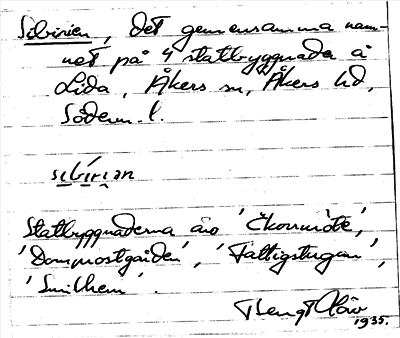 Sibirien, det gemensamma nam-
net på 4 statbyggnader å
Lida, Åkers sn, Åkers hd,
Söderm. l.
sibirian
Statbyggnaderna äro 'Ekorrmöte',
'Domprostgården', 'Fattigstugan',
'Smilhem'.
Bengt
1935.